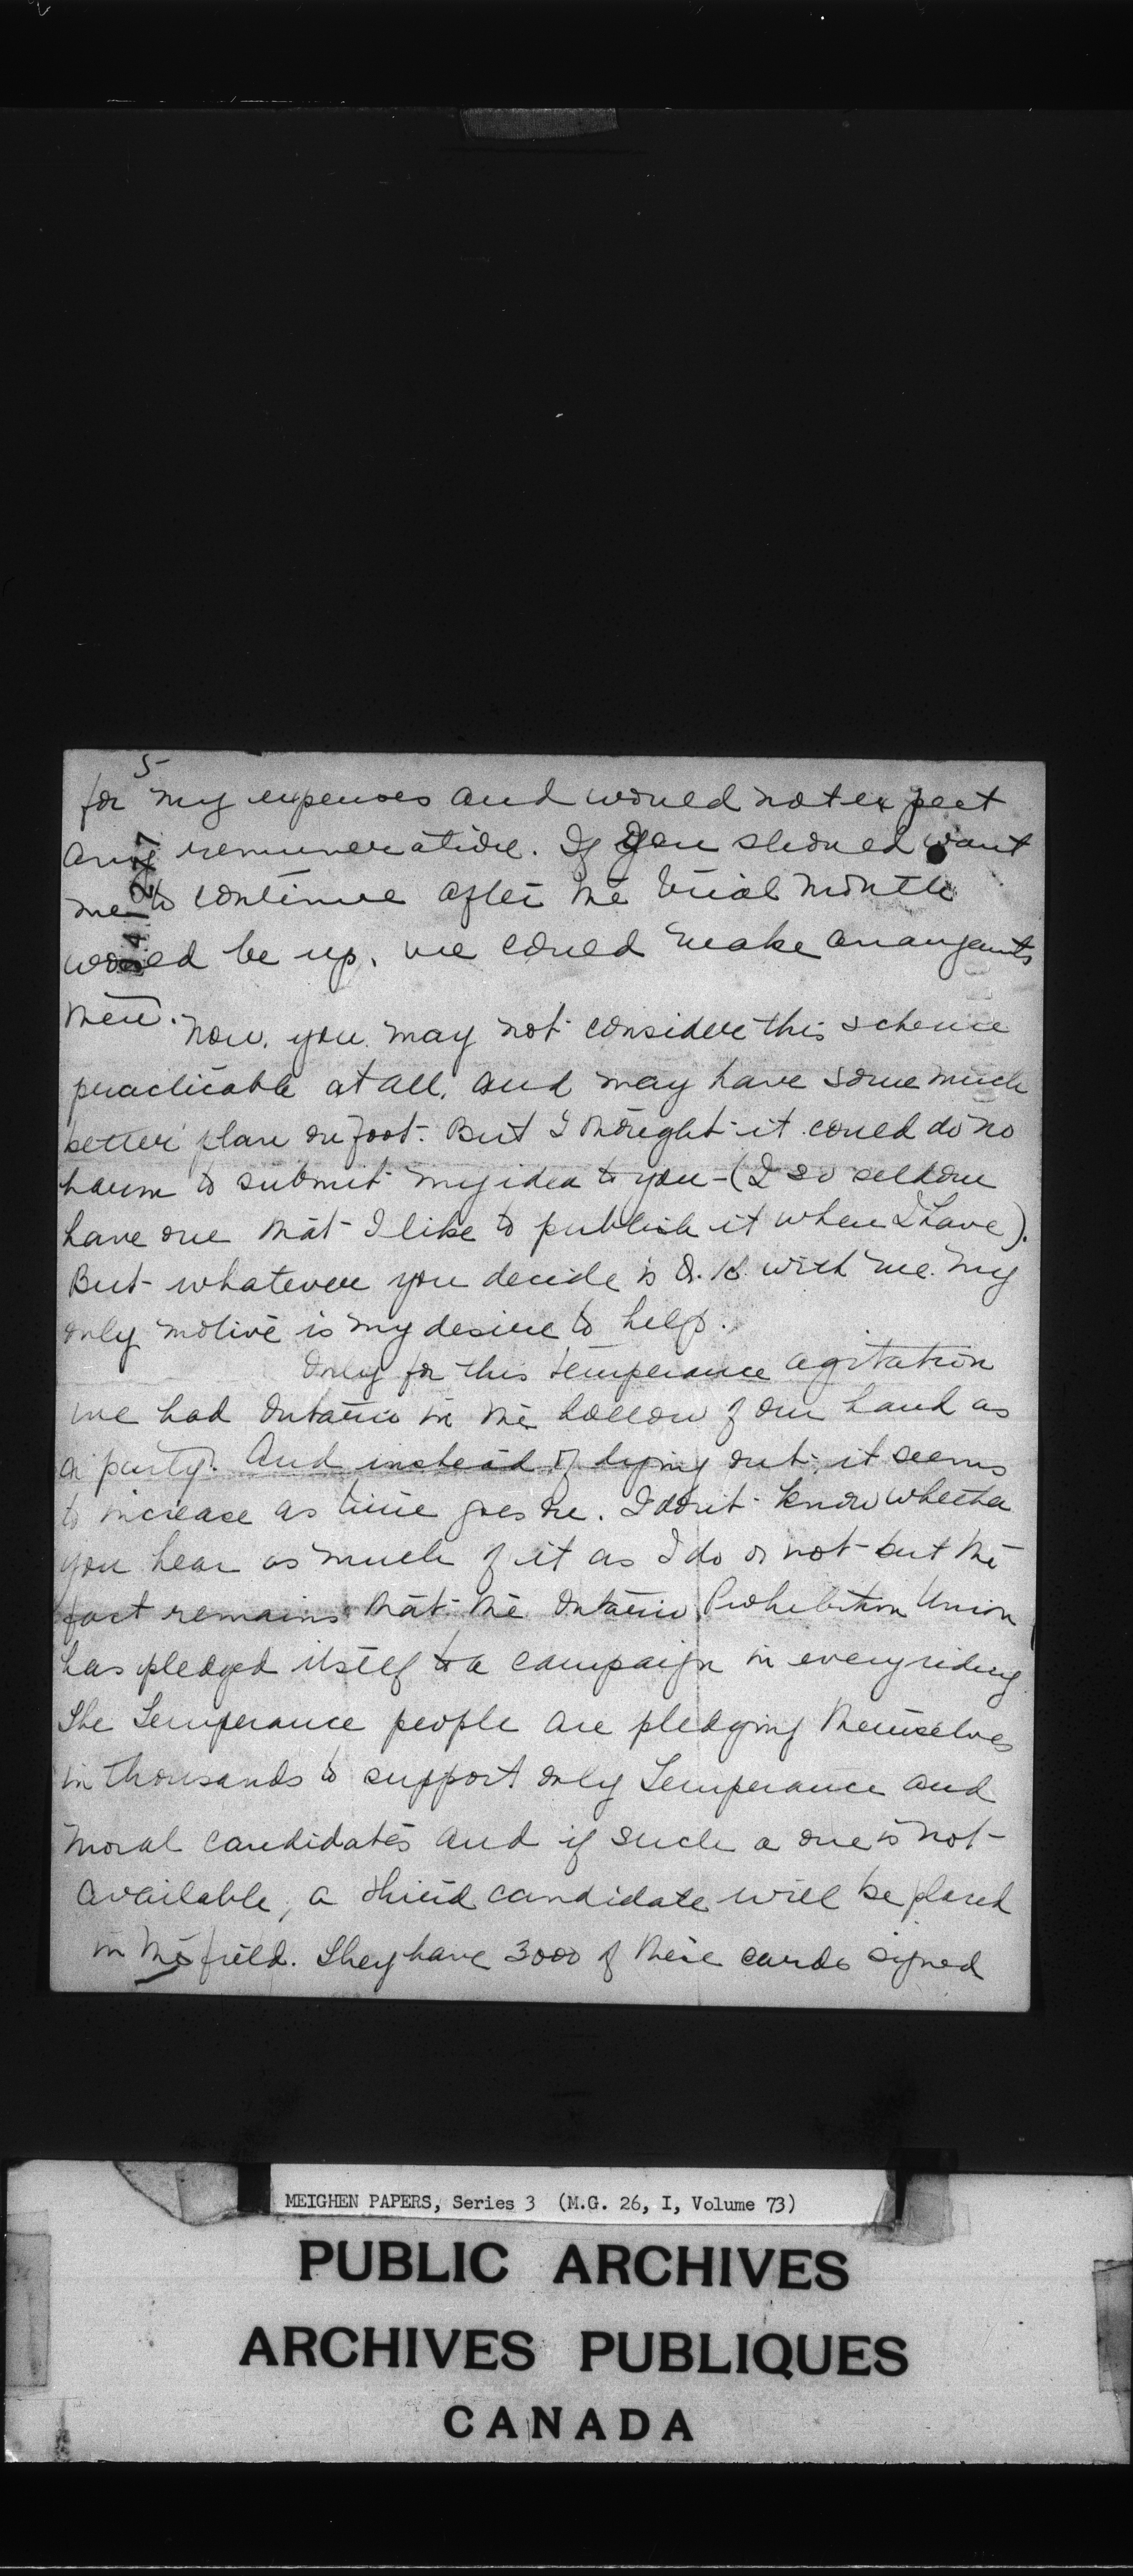 5
for my expenses and would not expect
any remuneration. If you should want
me to continue after the trial month
would be up, we could make arrangemts
then.
Now, you may not consider this scheme
practicable at all, and may have some much
better plan on foot. But I thought it could do no
harm to submit my idea to you - (I so seldom
have one that I like to publish it when I have).
But whatever you decide is O.K. with me. My
only motive is my desire to help.
Only for this temperance agitation
we had Ontario in the hollow of our hand as
a party. And instead of dying out it seems
to increase as time goes on. I don't know whether
you hear as much of it as I do or not but the
fact remains that the Ontario Prohibition Union
has pledged itself to a campaign in every riding
The Temperance people are pledging themselves
in thousands to support only Temperance and
moral candidates and if such a one is not
available, a third candidate will be placed
in the field. They have 3000 of these cards signed
MEIGHEN PAPERS, Series 3 (M.G. 26, I, Volume 73)
PUBLIC ARCHIVES
ARCHIVES PUBLIQUES
CANADA